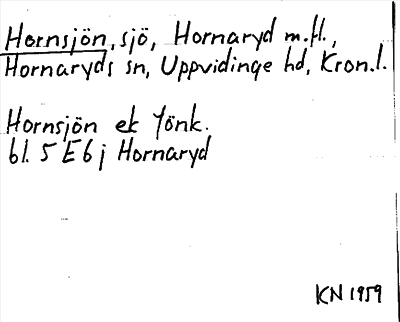 Hornsjön, sjö, Hornaryd m.fl.,
Hornaryds sn, Uppvidinge hd, Kron.l.
Hornsjön ek Jönk.
bl. 5 E 6 j Hornaryd
KN 1959